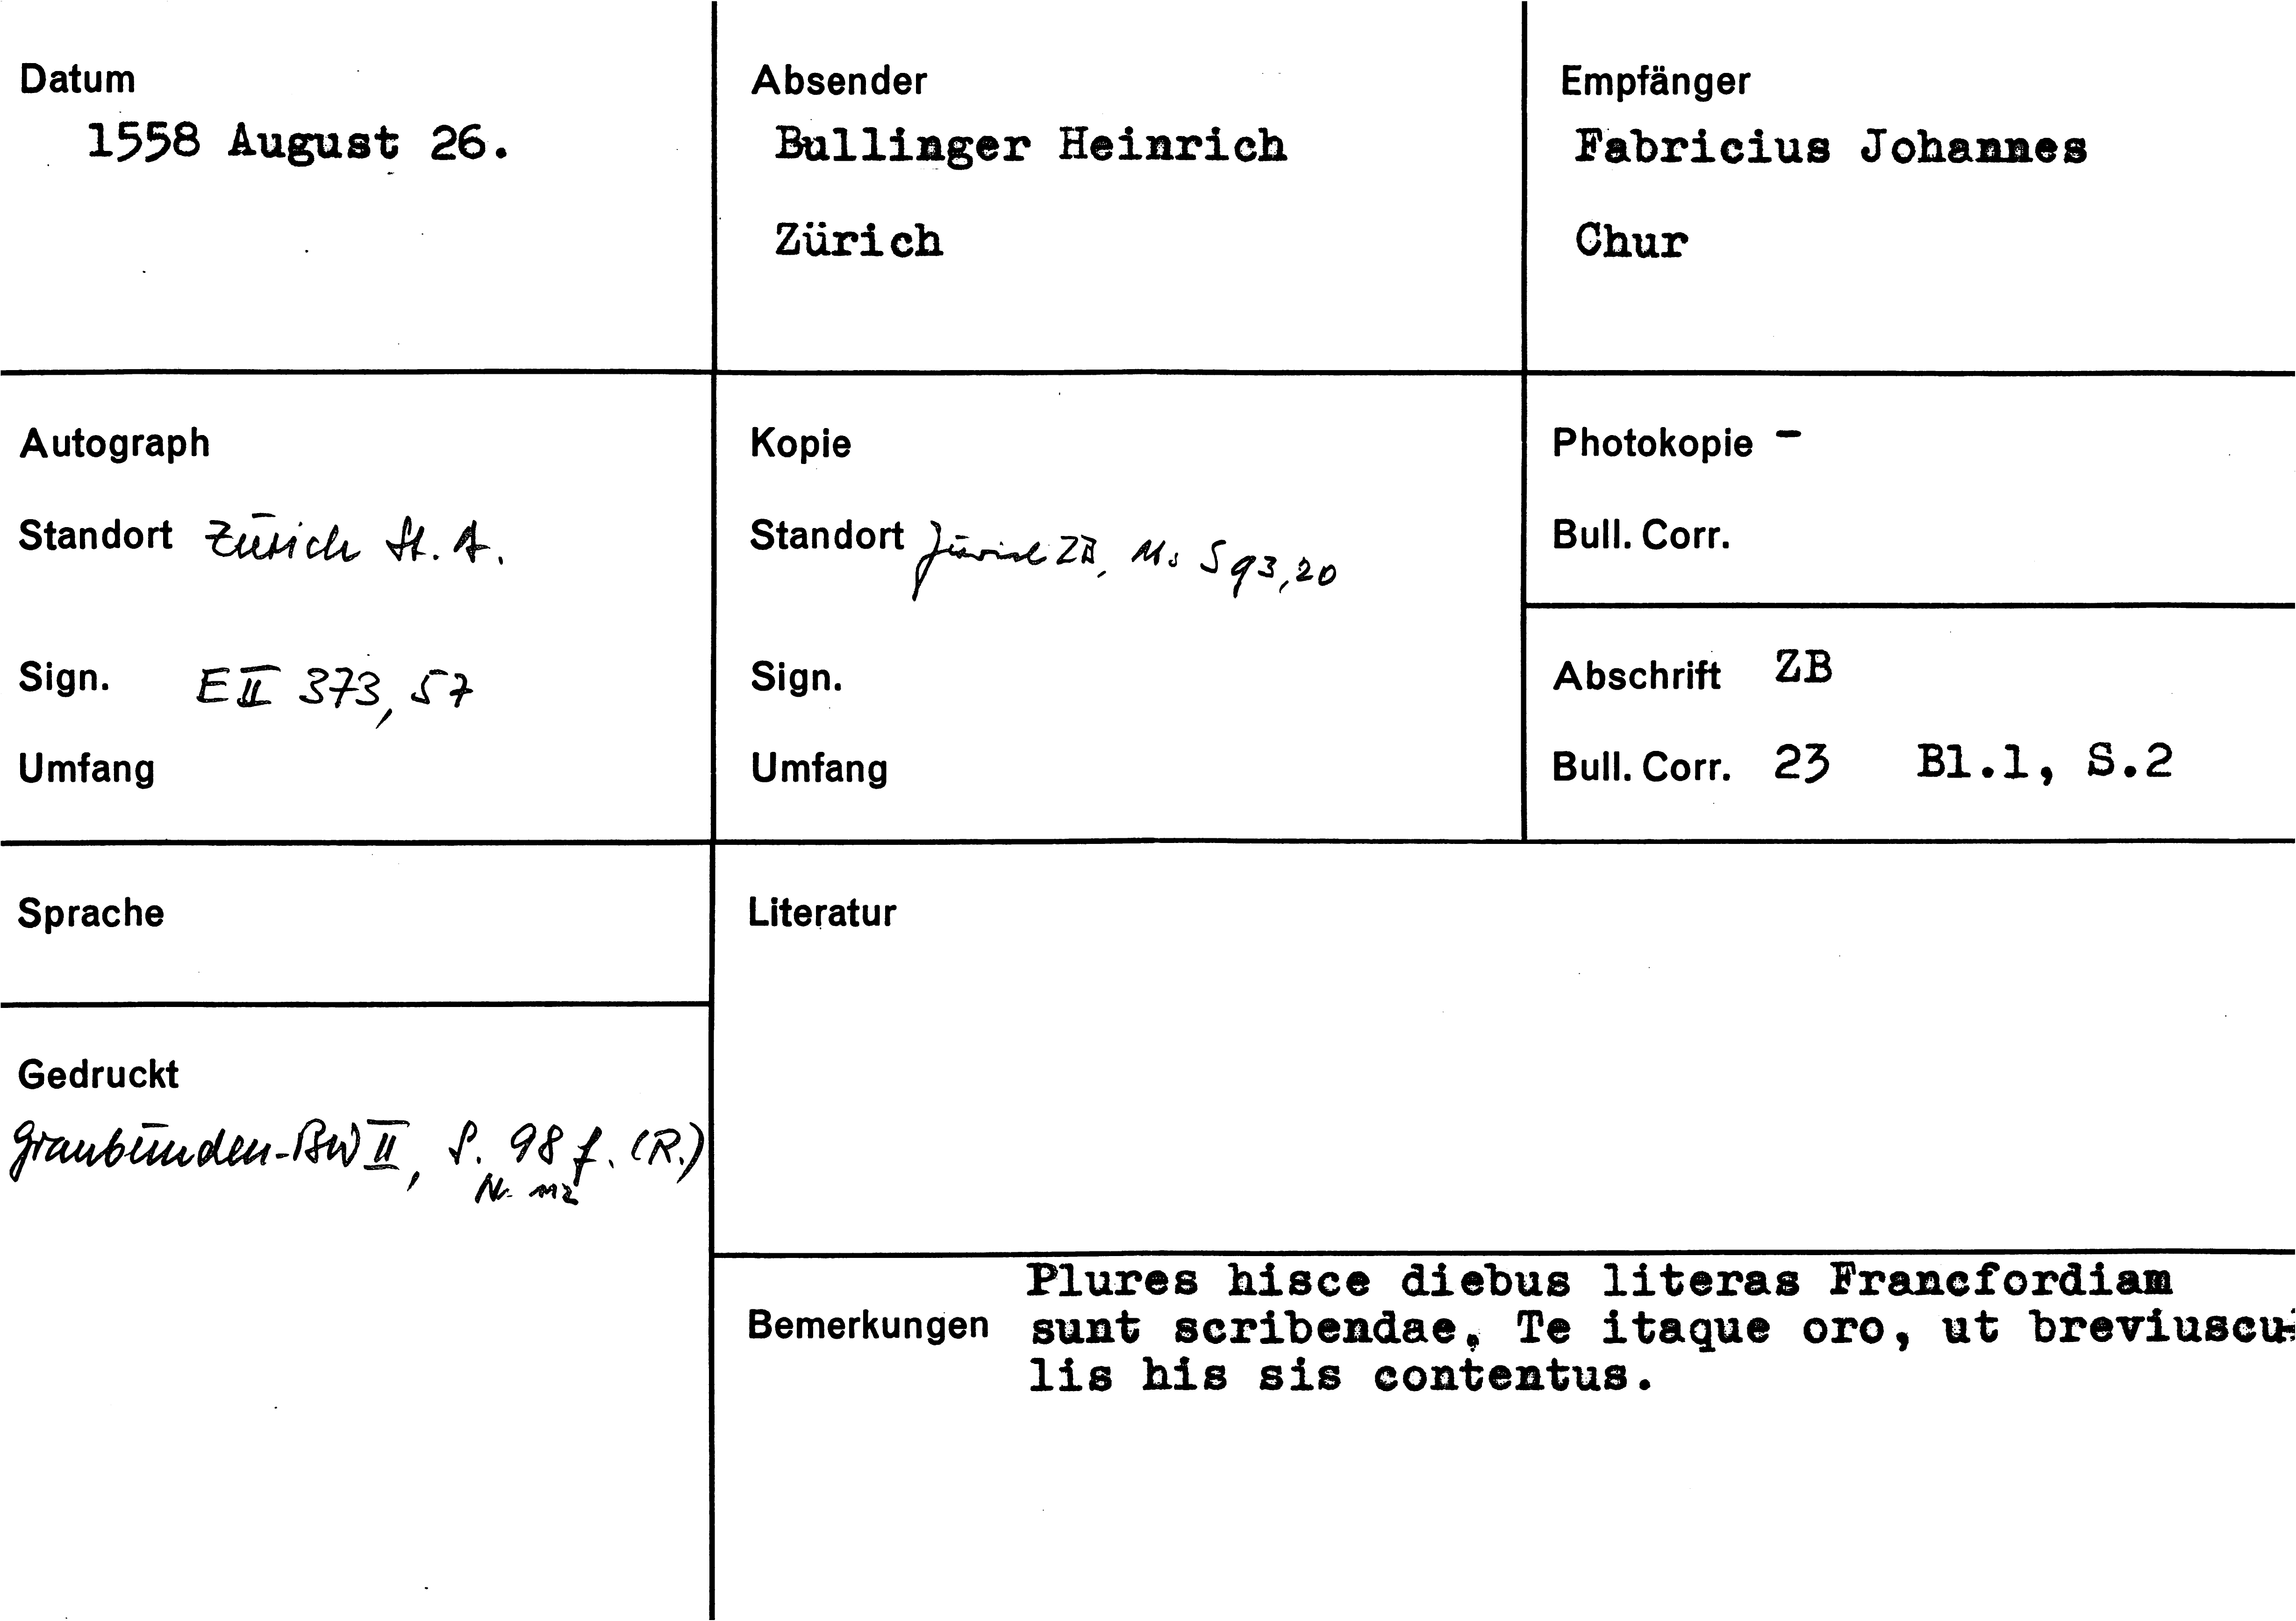 Datum
1558 August 26.
Absender
Bullinger Heinrich
Zürich
Empfänger
Fabricius Johannes
Chur
Autograph
Standort Zürich St. A.
Sign. E II 373, 57
Umfang
Kopie
Standort Zürich ZB, Ms S 93,20
Sign.
Umfang
Photokopie -
Bull. Corr.
Abschrift ZB
Bull. Corr. 23 Bl.1, S.2
Sprache
Gedruckt
Graubünden-BW II, S. 98 f. (R.)
Nr. 112
Literatur
Bemerkungen
Plures hisce diebus literas Francfordiam
sunt scribendae. Te itaque oro, ut breviuscu-
lis his sis contentus.